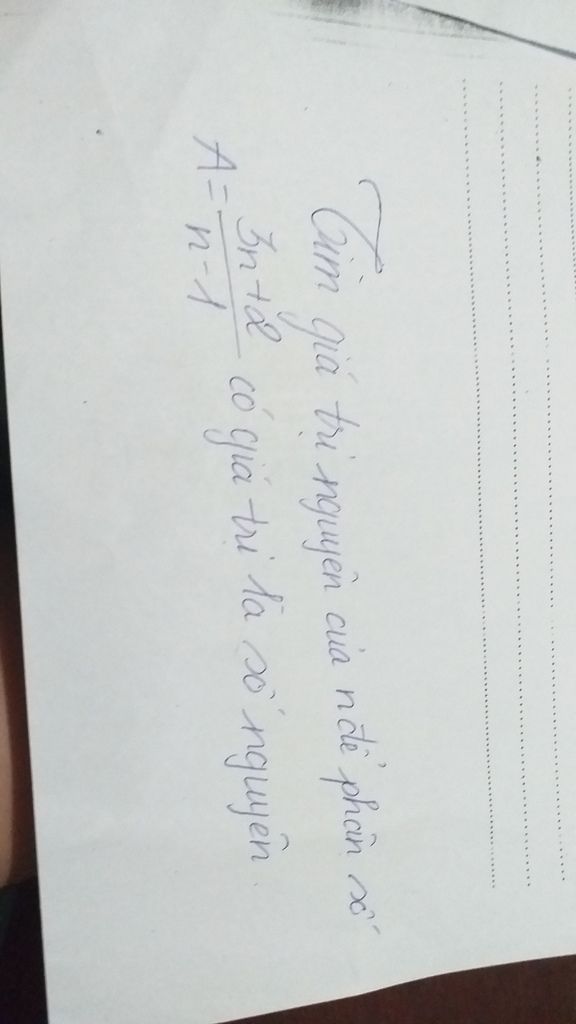 Tìm giá trị nguyên của n để phân số
A = 3n+2 / n-1 có giá trị là số nguyên.